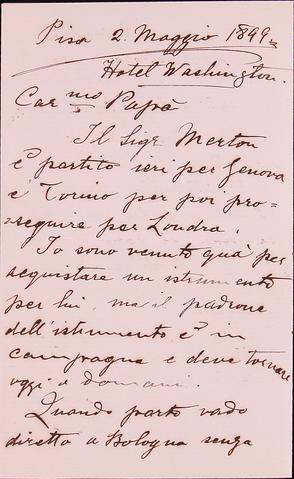 Pisa 2. Maggio 1899
Hotel Washington.
Car mo Papà
Il Sigr Merton
è partito ieri per Genova
e Torino per poi pro=
=seguire per Londra.
Io sono venuto quà per
acquistare un istrumento
per lui, ma il padrone
dell'istrumento è in
campagna e deve tornare
oggi o domani.
Quando parto vado
diretto a Bologna senza